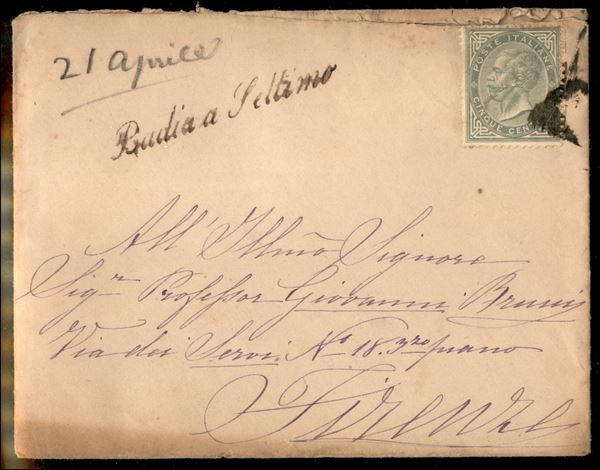 21 Aprile
Badia a Settimo
POSTE ITALIANE
CINQUE CENT
All' Illmo Signore
Sigr Professor Giovanni Brunij
Via dei Servi. No 18. 3zo piano
Firenze